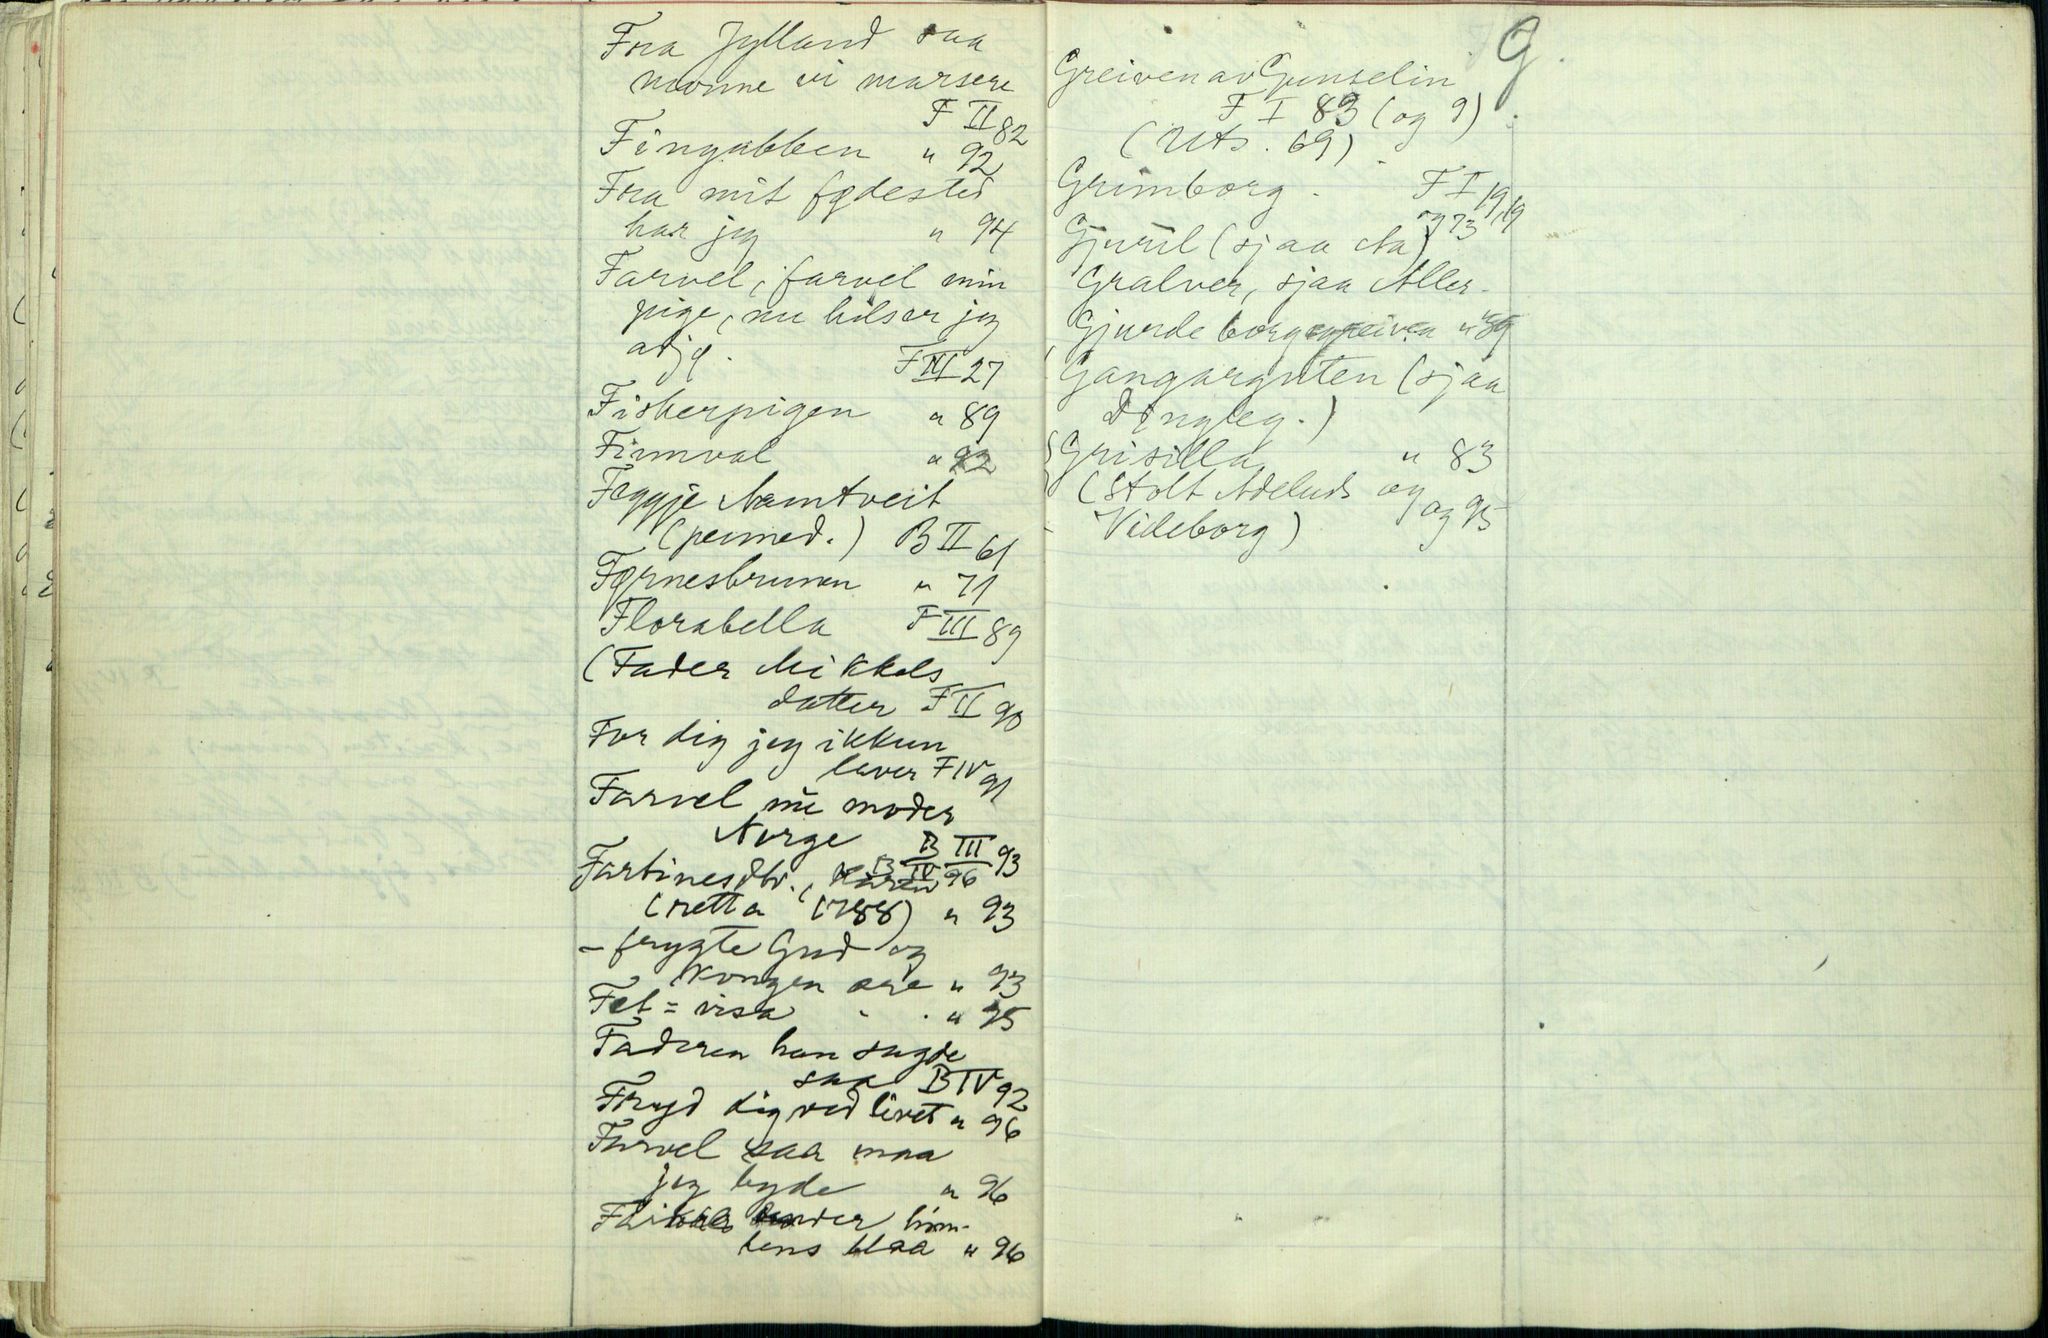 Fra Jylland saa
monne vi marsere
F II 82
Fingabben " 92
Fra mit fødested
har jeg " 94
Farvel, farvel min
pige, nu hilser jeg
adjø. F III 27
Fiskerpigen " 89
Finnval "
Føggje Namtveit
(permed.) B II 61
Førnesbrunen " 71
Florabella F III 89
(Fader Mikkels
datter F II 90
For dig jeg ikkun
lever F IV 91
Farvel nu moder
Norge B III 93
B IV 96
(netta 1788) " 93
- frygte Gud og
kongen ære " 93
Fet = visa " 95
Faderen han sagde
saa B IV 92
Fryd dig ved livet " 96
Farvel saa maa
jeg byde " 96
under him-
lens blaa " 96
G.
Greiven av Gunselin
F I 83 (og 9)
(Uts. 69)
Grimborg. F I 19, 19
og 73
Gjuril (sjaa Aa)
Gralver, sjaa Aller-
Gjurde borgargreiven " 89
Gangarguten (sjaa
Dingleg.)
Grisilla " 83
(Stolt Adeluds og og 95
Videborg)